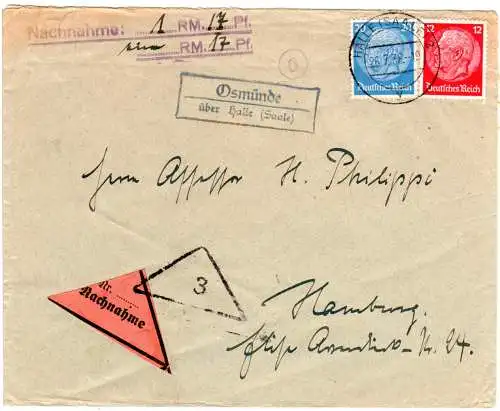 Nachnahme: 1 RM. 17 Pf.
RM. 17 Pf.
HALLE (SAALE)
12
Deutsches Reich
Deutsches Reich
Osmünde
über Halle (Saale)
Herrn Assessor H. Philippi
3
Nr.
Nachnahme
Hamburg.
24.